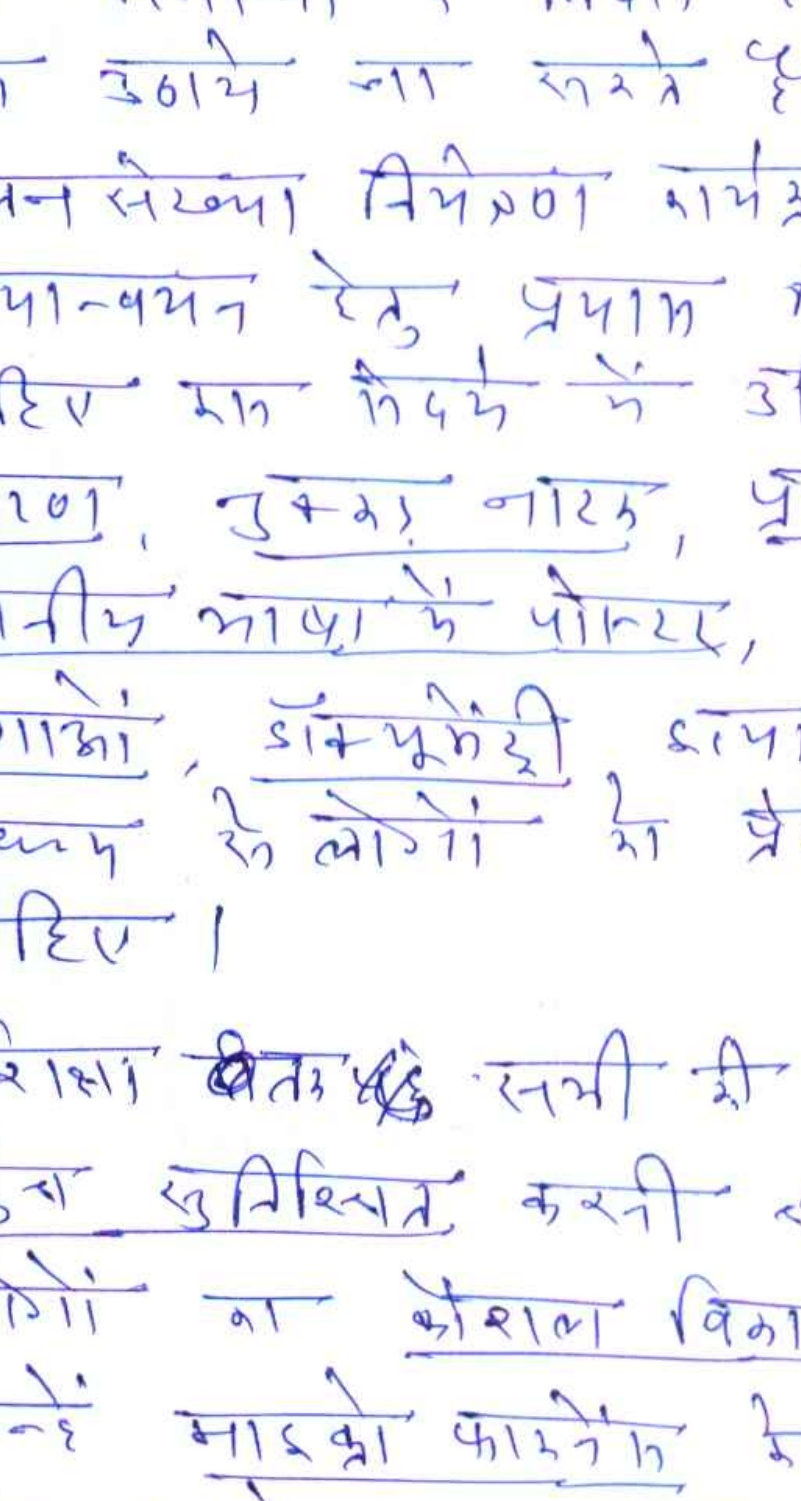 उठाये जा सकते है
जन संख्या नियंत्रण कार्यक्र
यान्वयन हेतु प्रयास
हिए इस संदर्भ में
रण, नुक्कड़ नाटक, प्र
नीय भाषा में पोस्टर,
गाओं, डॉक्यूमेंट्री
ध्यम से लोगों को प्रे
हिए।
शिक्षा तक सभी की
सुनिश्चित करनी
लोगों का कौशल विका
न्हें माइक्रो फाइनेंस के